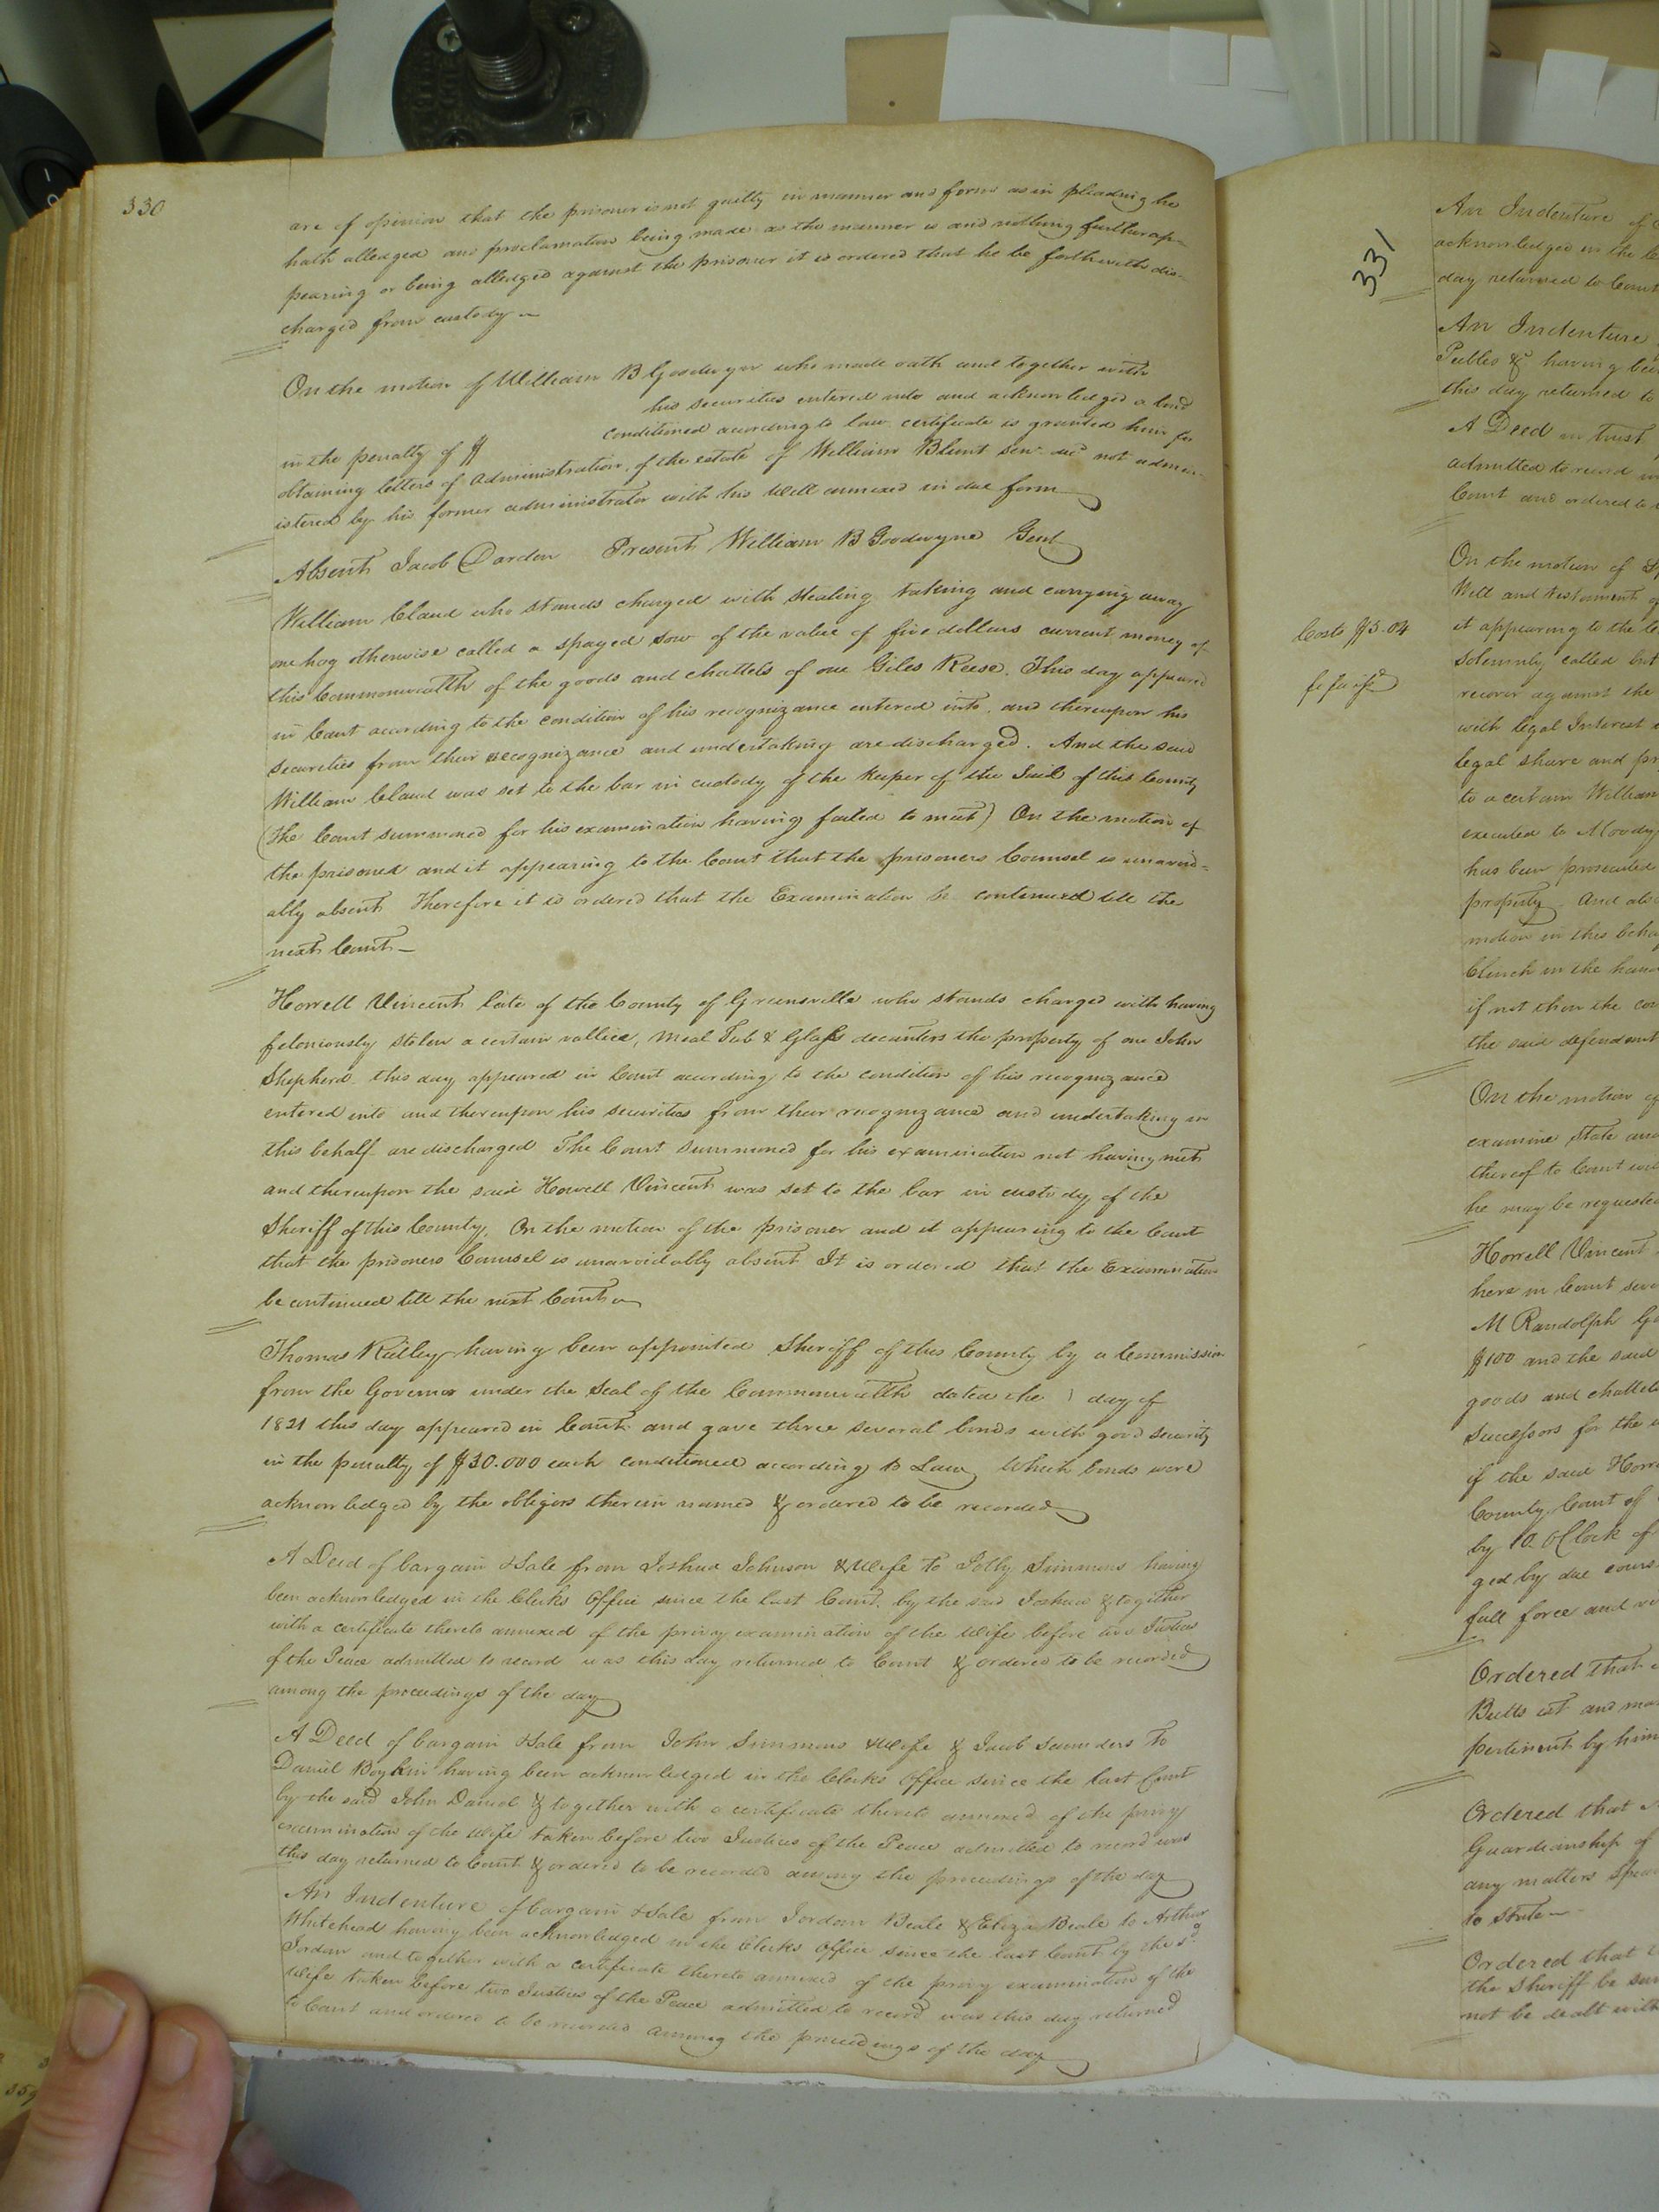 330
are of opinion that the prisoner is not guilty in manner and form as in pleading he
hath alledged and proclamation being made as the manner is and nothing further ap-
pearing or being alledged against the prisoner it is ordered that he be forthwith dis-
charged from custody
On the motion of William B Goodwyn who made oath and together with
his securities entered into and acknowledged a bond
in the penalty of $ conditioned according to law certificate is granted him for
obtaining letters of Administration of the estate of William Blunt Senr decd not admin-
istered by his former administrator with his Will annexed in due form
Absent Jacob Darden Present William B Goodwyne Gent
William Claud who stands charged with stealing taking and carrying away
one hog otherwise called a spayed sow of the value of five dollars current money of
this Commonwealth of the goods and chattels of one Giles Reese. This day appeared
in Court according to the condition of his recognizance entered into, and thereupon his
securities from their recognizance and undertaking are discharged. And the said
William Claud was set to the bar in custody of the Keeper of the Jail of this County
(The Court summoned for his examination having failed to meet) On the motion of
the prisoner and it appearing to the Court that the prisoners Counsel is unavoid-
ably absent Therefore it is ordered that the Examination be continued till the
next Court
Howell Vincent late of the County of Greensville who stands charged with having
feloniously stolen a certain vallice, Meal Tub & Glass decanters the property of one John
Shepherd this day appeared in Court according to the condition of his recognizance
entered into and thereupon his securities from their recognizance and undertaking in
this behalf are discharged The Court summoned for his examination not having met
and thereupon the said Howell Vincent was set to the bar in custody of the
Sheriff of this County. On the motion of the prisoner and it appearing to the Court
that the prisoners Counsel is unavoidably absent It is ordered that the Examination
be continued till the next Court
Thomas Ridley having been appointed Sheriff of this County by a Commission
from the Governor under the Seal of the Commonwealth dated the day of
1821 this day appeared in Court and gave three several bonds with good security
in the penalty of $30.000 each conditioned according to Law, Which bonds were
acknowledged by the obligors therein named & ordered to be recorded
A Deed of bargain & Sale from Joshua Johnson & Wife to Jolly Simmons having
been acknowledged in the Clerks Office since the last Court by the said Joshua & together
with a certificate thereto annexed of the privy examination of the Wife before two Justices
of the Peace admitted to record was this day returned to Court & ordered to be recorded
among the proceedings of the day
A Deed of bargain & Sale from John Simmons & Wife & Jacob Saunders To
Daniel Boykin having been acknowledged in the Clerks Office since the last Court
by the said John Daniel & together with a certificate thereto annexed of the privy
examination of the Wife taken before two Justices of the Peace admitted to record was
this day returned to Court & ordered to be recorded among the proceedings of the day
An Indenture of bargain & Sale from Jordan Beale & Eliza Beale to Arthur
Whitehead having been acknowledged in the Clerks Office since the last Court by the sd
Jordan and together with a certificate thereto annexed of the privy examination of the
Wife taken before two Justices of the Peace admitted to record was this day returned
to Court and ordered to be recorded among the proceedings of the day
331
An Indenture of
acknowledged in the
day returned to Court
An Indenture
Peebles & having
this day returned to
A Deed in trust
admitted to record
Court and ordered to
On the motion of
Will and testament
Costs $5.04 it appearing to the
solemnly called but
recover against the
with legal Interest
legal share and
to a certain William
executed to Moody
has been prosecuted
property. And also
motion in this
Clinch in the
if not then the
the said defendant
On the motion of
examine State and
thereof to Court
he may be requested
Howell Vincent
here in Court
M Randolph
$100 and the said
goods and chattels
Successors for the
if the said
County Court of
by 10 OClock of
ged by due
full force and
Ordered that
Butts est and
pertinent by him
Ordered that
Guardianship of
any matters
to State
Ordered that
the Sheriff be
not be dealt with